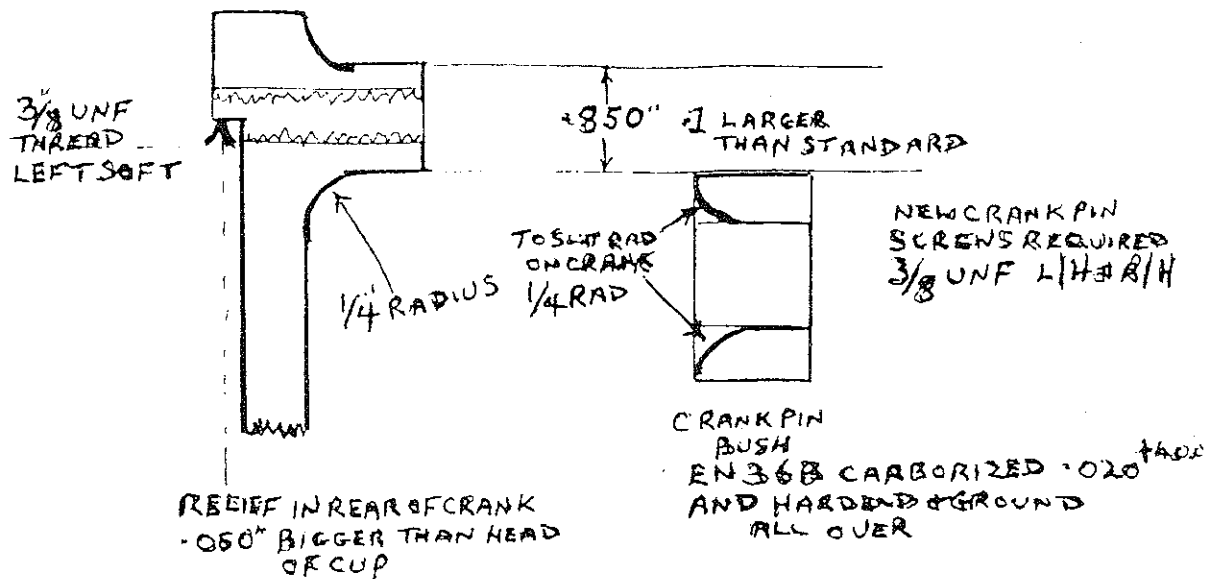 3/8" UNF
THREAD
LEFT SOFT
.850" .1 LARGER
THAN STANDARD
1/4" RADIUS
TO SUIT RAD
ON CRANK
1/4 RAD
NEW CRANK PIN
SCREWS REQUIRED
3/8 UNF L/H & R/H
CRANK PIN
BUSH
EN36B CARBORIZED .020
AND HARDEND & GROUND
ALL OVER
RELIEF IN REAR OF CRANK
BIGGER THAN HEAD
OF CUP